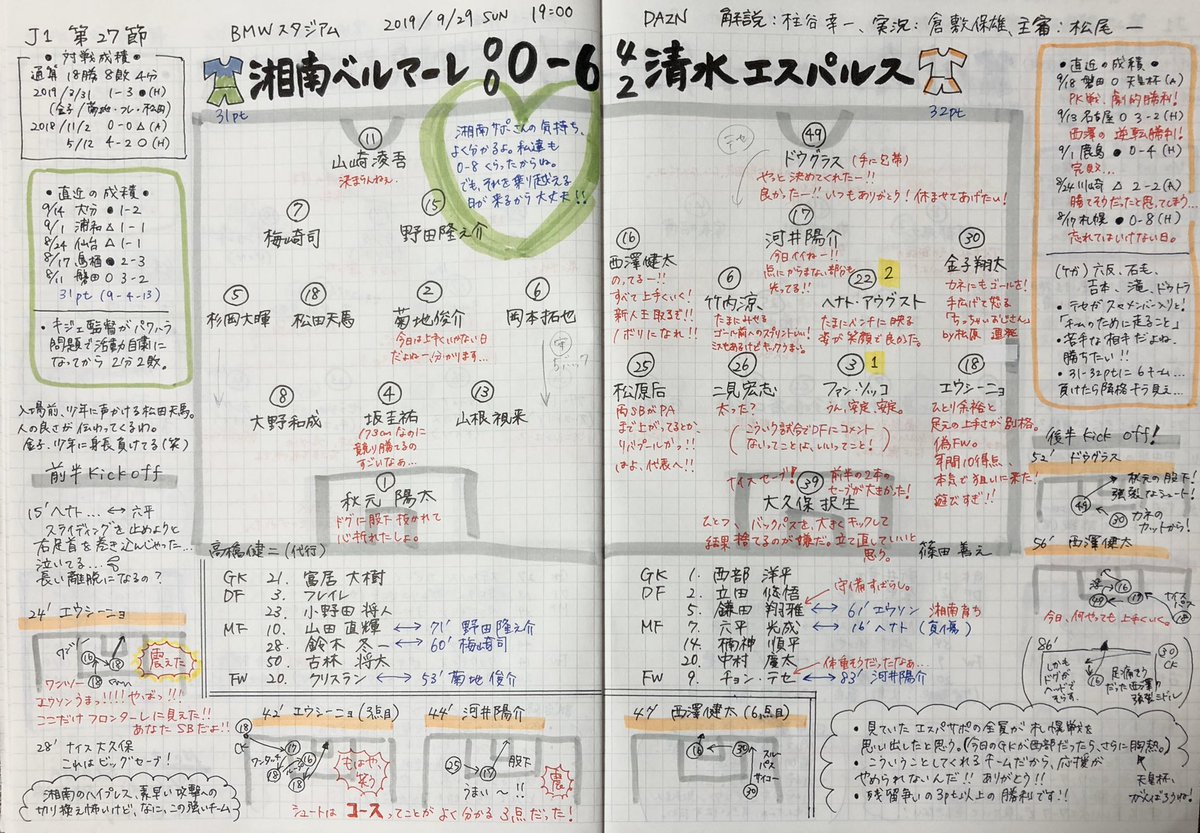 J1 第27節
BMWスタジアム 2019/9/29 SUN 19:00
DAZN 解説:柱谷幸一、実況:倉敷保雄、主審:松尾一
湘南ベルマーレ 0 0 0-6 4 2 清水エスパルス
31pt
32pt
・対戦成績・
通算 18勝8敗4分
2019/3/31 1-3●(H)
(金子/菊地・フレ・松田)
2018/11/2 0-0△(A)
5/12 4-2○(H)
・直近の成績・
9/14 大分 ● 1-2
9/1 浦和 △ 1-1
8/24 仙台 △ 1-1
8/17 鳥栖 ● 2-3
8/11 磐田 ○ 3-2
31pt (9-4-13)
・チョウ監督がパワハラ
問題で活動自粛に
なってから2分2敗。
入場前、少年に声かける松田天馬。
人の良さが伝わってくるわ。
金子、少年に身長負けてる(笑)
前半 Kick off
15' ヘナト… ↔ 六平
スライディングを止めようと
右足首を巻き込んじゃった…
泣いてる…
長い離脱になるの?
24' エウシーニョ
16
18
18
震えた
ワンツー
エウソンうまっ!!!!やばっ!!!
ここだけフロンターレに見えた!!
あなたSBだよ!!
28' ナイス大久保
これはビッグセーブ!
湘南のハイプレス、素早い攻撃への
切り換え怖いけど、なに、この強いチーム
11
山崎凌吾
決まらんねぇ
湘南サポさんの気持ち、
よく分かるよ。私達も
0-8くらったからね。
でも、それを乗り越える
日が来るから大丈夫!!
7
梅崎司
15
野田隆之介
5
杉岡大暉
18
松田天馬
2
菊地俊介
今日は上手くいかない日
だよねー、分かります…
6
岡本拓也
8
大野和成
4
坂圭祐
173cmなのに
競り勝てるの
すごいなぁ…
13
山根視来
1
秋元陽太
ドグに股下抜かれて
心折れたしょ。
高橋健二(代行)
GK 21. 富居大樹
DF 3. フレイレ
23. 小野田将人
MF 10. 山田直輝 ↔ 71' 野田隆之介
28. 鈴木冬一 ↔ 60' 梅崎司
50. 古林将太
FW 20. クリスラン ↔ 53' 菊地俊介
42' エウシーニョ(3点目)
18
CK
ワンタッチ
もはや、笑う
44' 河井陽介
25
17
股下
うまい〜!!
震
シュートはコースってことがよく分かる3点だった!
テセ
49
ドウグラス(手に包帯)
やっと決めてくれたー!!
良かったー!!いつもありがとう!休ませてあげたい!
17
河井陽介
今日イイねー!!
点にからまない部分も
光ってる!!
16
西澤健太
のってるー!!
すべて上手くいく!
新人王取るぞ!!
1ボリになれ!!
6
竹内涼
たまにみせる
ゴール前へのスプリントいい!
ミスもあるけどキックうまい。
22 2
ヘナト・アウグスト
たまにベンチに映る
姿が笑顔で良かった。
30
金子翔太
カネにもゴールを!
手広げて怒る
「ちっちゃいおじさん」
by松原 直樹
25
松原后
両SBがPA
まで上がってるとか、
リバプールかっ!!
はよ、代表へ!!
26
二見宏志
太った?
3 1
ファン・ソッコ
うん、安定、安定。
(こういう試合でDFにコメント
ないってことは、いいってこと!)
18
エウシーニョ
ひとり余裕と
足元の上手さが別格。
偽FW。
年間10得点
本気で狙いに来た!
遊びすぎ!!
ナイスセーブ!
39
前半の2本の
セーブが大きかった!
大久保択生
ひとつ、バックパスを、大きくキックして
結果捨てるのが嫌だ。立て直していいと
思う。
篠田善之
GK 1. 西部洋平
DF 2. 立田悠悟
守備すばらし。
5. 鎌田翔雅 ↔ 61' エウソン 湘南育ち
MF 7. 六平光成 ↔ 16' ヘナト(負傷)
14. 楠神順平
20. 中村慶太
体重そうだったなぁ…
FW 9. チョン・テセ ↔ 83' 河井陽介
47' 西澤健太(6点目)
16
30
スルーパス
サイコー
30
・直近の成績・
9/18 磐田 ○ 天皇杯(A)
PK戦、劇的勝利!
9/13 名古屋 ○ 3-2(H)
西澤の逆転勝利!
9/1 鹿島 ● 0-4(H)
完敗…
8/24 川崎 △ 2-2(A)
勝てそうだったと思ってしまう…
8/17 札幌 ● 0-8(H)
忘れてはいけない日。
(ケガ)六反、石毛、
吉本、滝、ドウトラ
・テセがスタメン入りと!
「チームのために走ること」
・苦手な相手だよね。
勝ちたい!!
・31-32ptに6チーム…
負けたら降格そう見え…
後半 Kick off!
52' ドウグラス
秋元の股下!
強烈なシュート!
49
30
カネの
カットから!
56' 西澤健太
16
49
17
18
ナイスパス
今日、何やっても上手くいく。
86'
30
CK
しかも
ドグが
ヘッドで
そらす。
16
足痛そう
だった西澤
強烈ミドル
・見ていたエスパサポの全員が札幌戦を
思い出したと思う。(今日のGKが西部だったら、さらに胸熱。)
・こういうことしてくれるチームだから、応援が
やめられないんだ!!ありがとう!!
天皇杯、
がんばろうね!
・残留争いの3pt以上の勝利です!!